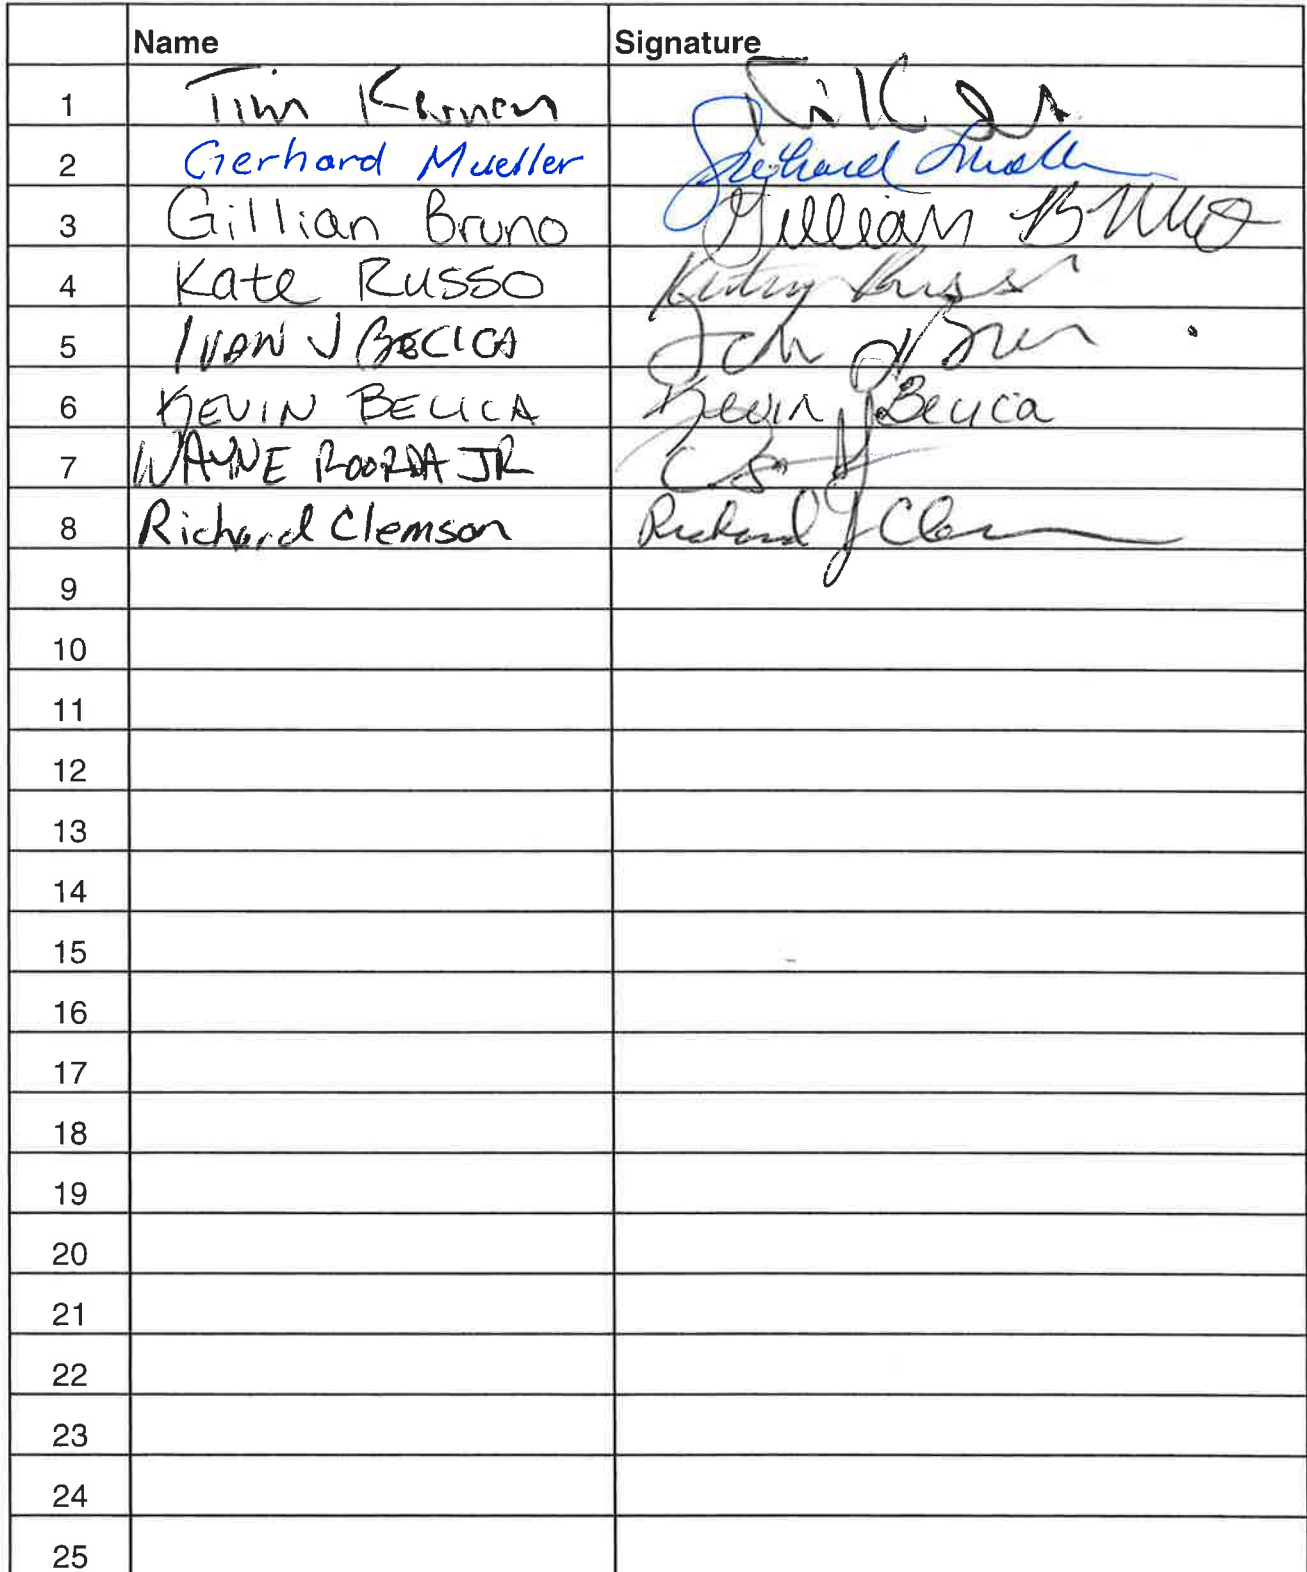 Name Signature
1 Tim
2 Gerhard Mueller Gerhard Mueller
3 Gillian Bruno Gillian Bruno
4 Kate Russo
5 IVAN J BECICA
6 KEVIN BECICA Kevin J Becica
7 WAYNE ROORDA JR
8 Richard Clemson Richard J Clem
9
10
11
12
13
14
15
16
17
18
19
20
21
22
23
24
25